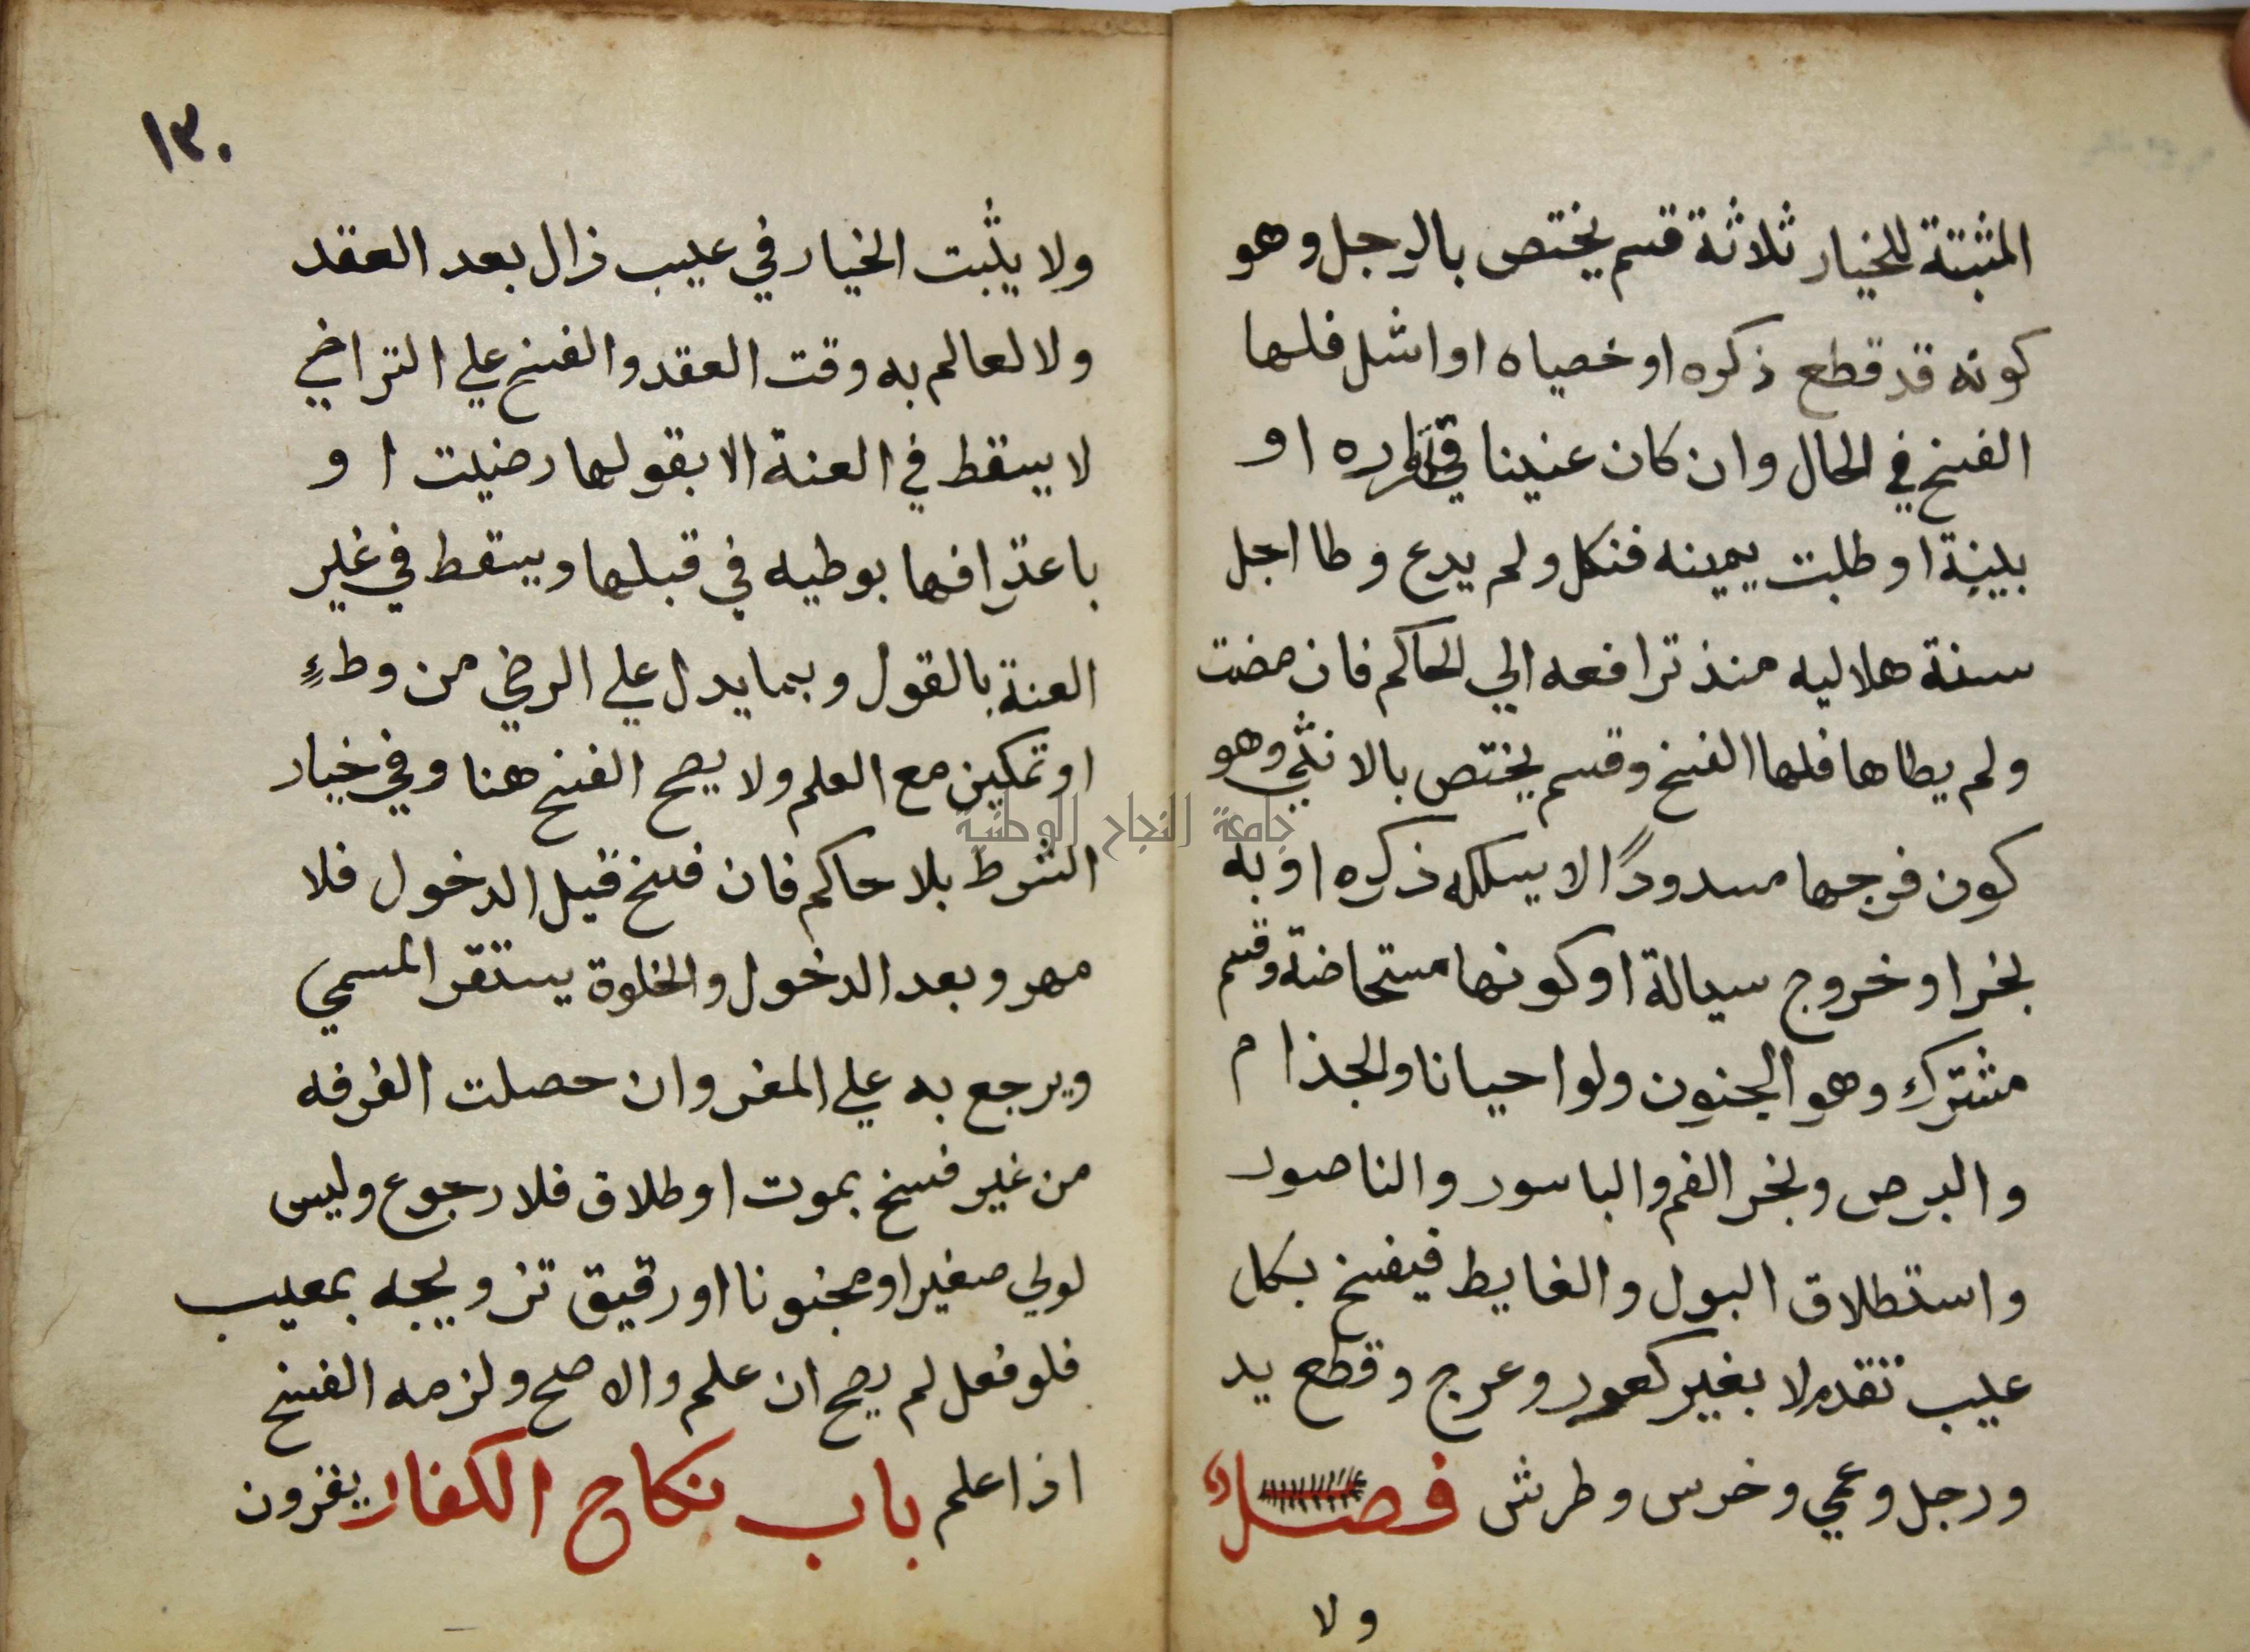 المثبتة للخيار ثلاثة قسم يختص بالرجل وهو
كونه قد قطع ذكره او خصياه او اشل فلها
الفسخ في الحال وان كان عنينا باقراره او
ببينة او طلبت يمينه فنكل ولم يدع وطا اجل
سنة هلاليه منذ ترافعه الي الحاكم فان مضت
ولم يطاها فلها الفسخ وقسم يختص بالانثي وهو
كون فرجها مسدودًا لا يسلكه ذكره او به
بخر او خروج سيالة او كونها مستحاضة وقسم
مشترك وهو الجنون ولو احيانا والجذام
والبرص وبخر الفم والباسور والناصور
واستطلاق البول والغايط فيفسخ بكل
عيب تقدم لا بغير كعور وعرج وقطع يد
ورجل وعمي وخرس وطرش فصل
ولا
١٣٠
ولا يثبت الخيار في عيب زال بعد العقد
ولا لعالم به وقت العقد والفسخ علي التراخي
لا يسقط في العنة الا بقولها رضيت او
باعترافها بوطيه في قبلها ويسقط في غير
العنة بالقول وبما يدل علي الرضي من وطءٍ
او تمكين مع العلم ولا يصح الفسخ هنا وفي خيار
الشرط بلا حاكم فان فسخ قبل الدخول فلا
مهر وبعد الدخول والخلوة يستقر المسمي
ويرجع به علي المغر وان حصلت الفرقه
من غير فسخ بموت او طلاق فلا رجوع وليس
لولي صغير او مجنونا او رقيق تزويجه بمعيب
فلو فعل لم يصح ان علم والا صح ولزمه الفسخ
اذا علم باب نكاح الكفار يقرون
جامعة النجاح الوطنية